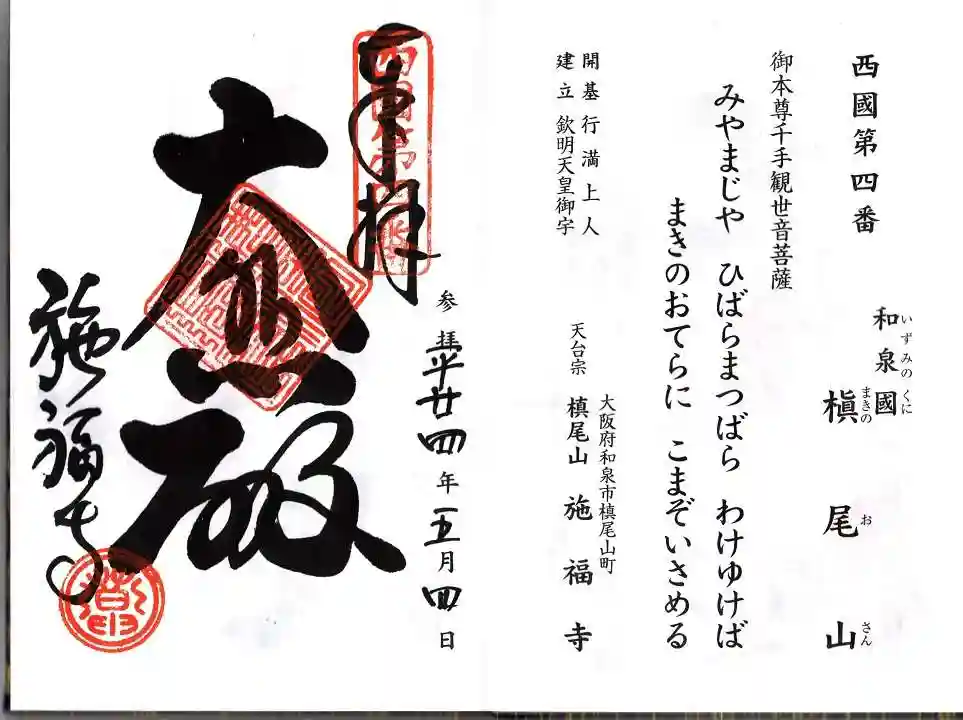 西國第四番
和泉國
いずみの くに
槇尾山
まきの お さん
御本尊千手観世音菩薩
みやまじや ひばらまつばら わけゆけば
まきのおてらに こまぞいさめる
開基 行満上人
建立 欽明天皇御宇
天台宗
大阪府和泉市槙尾山町
槙尾山 施福寺
奉拝
参拝 平廿四年五月四日
大悲殿
施福寺